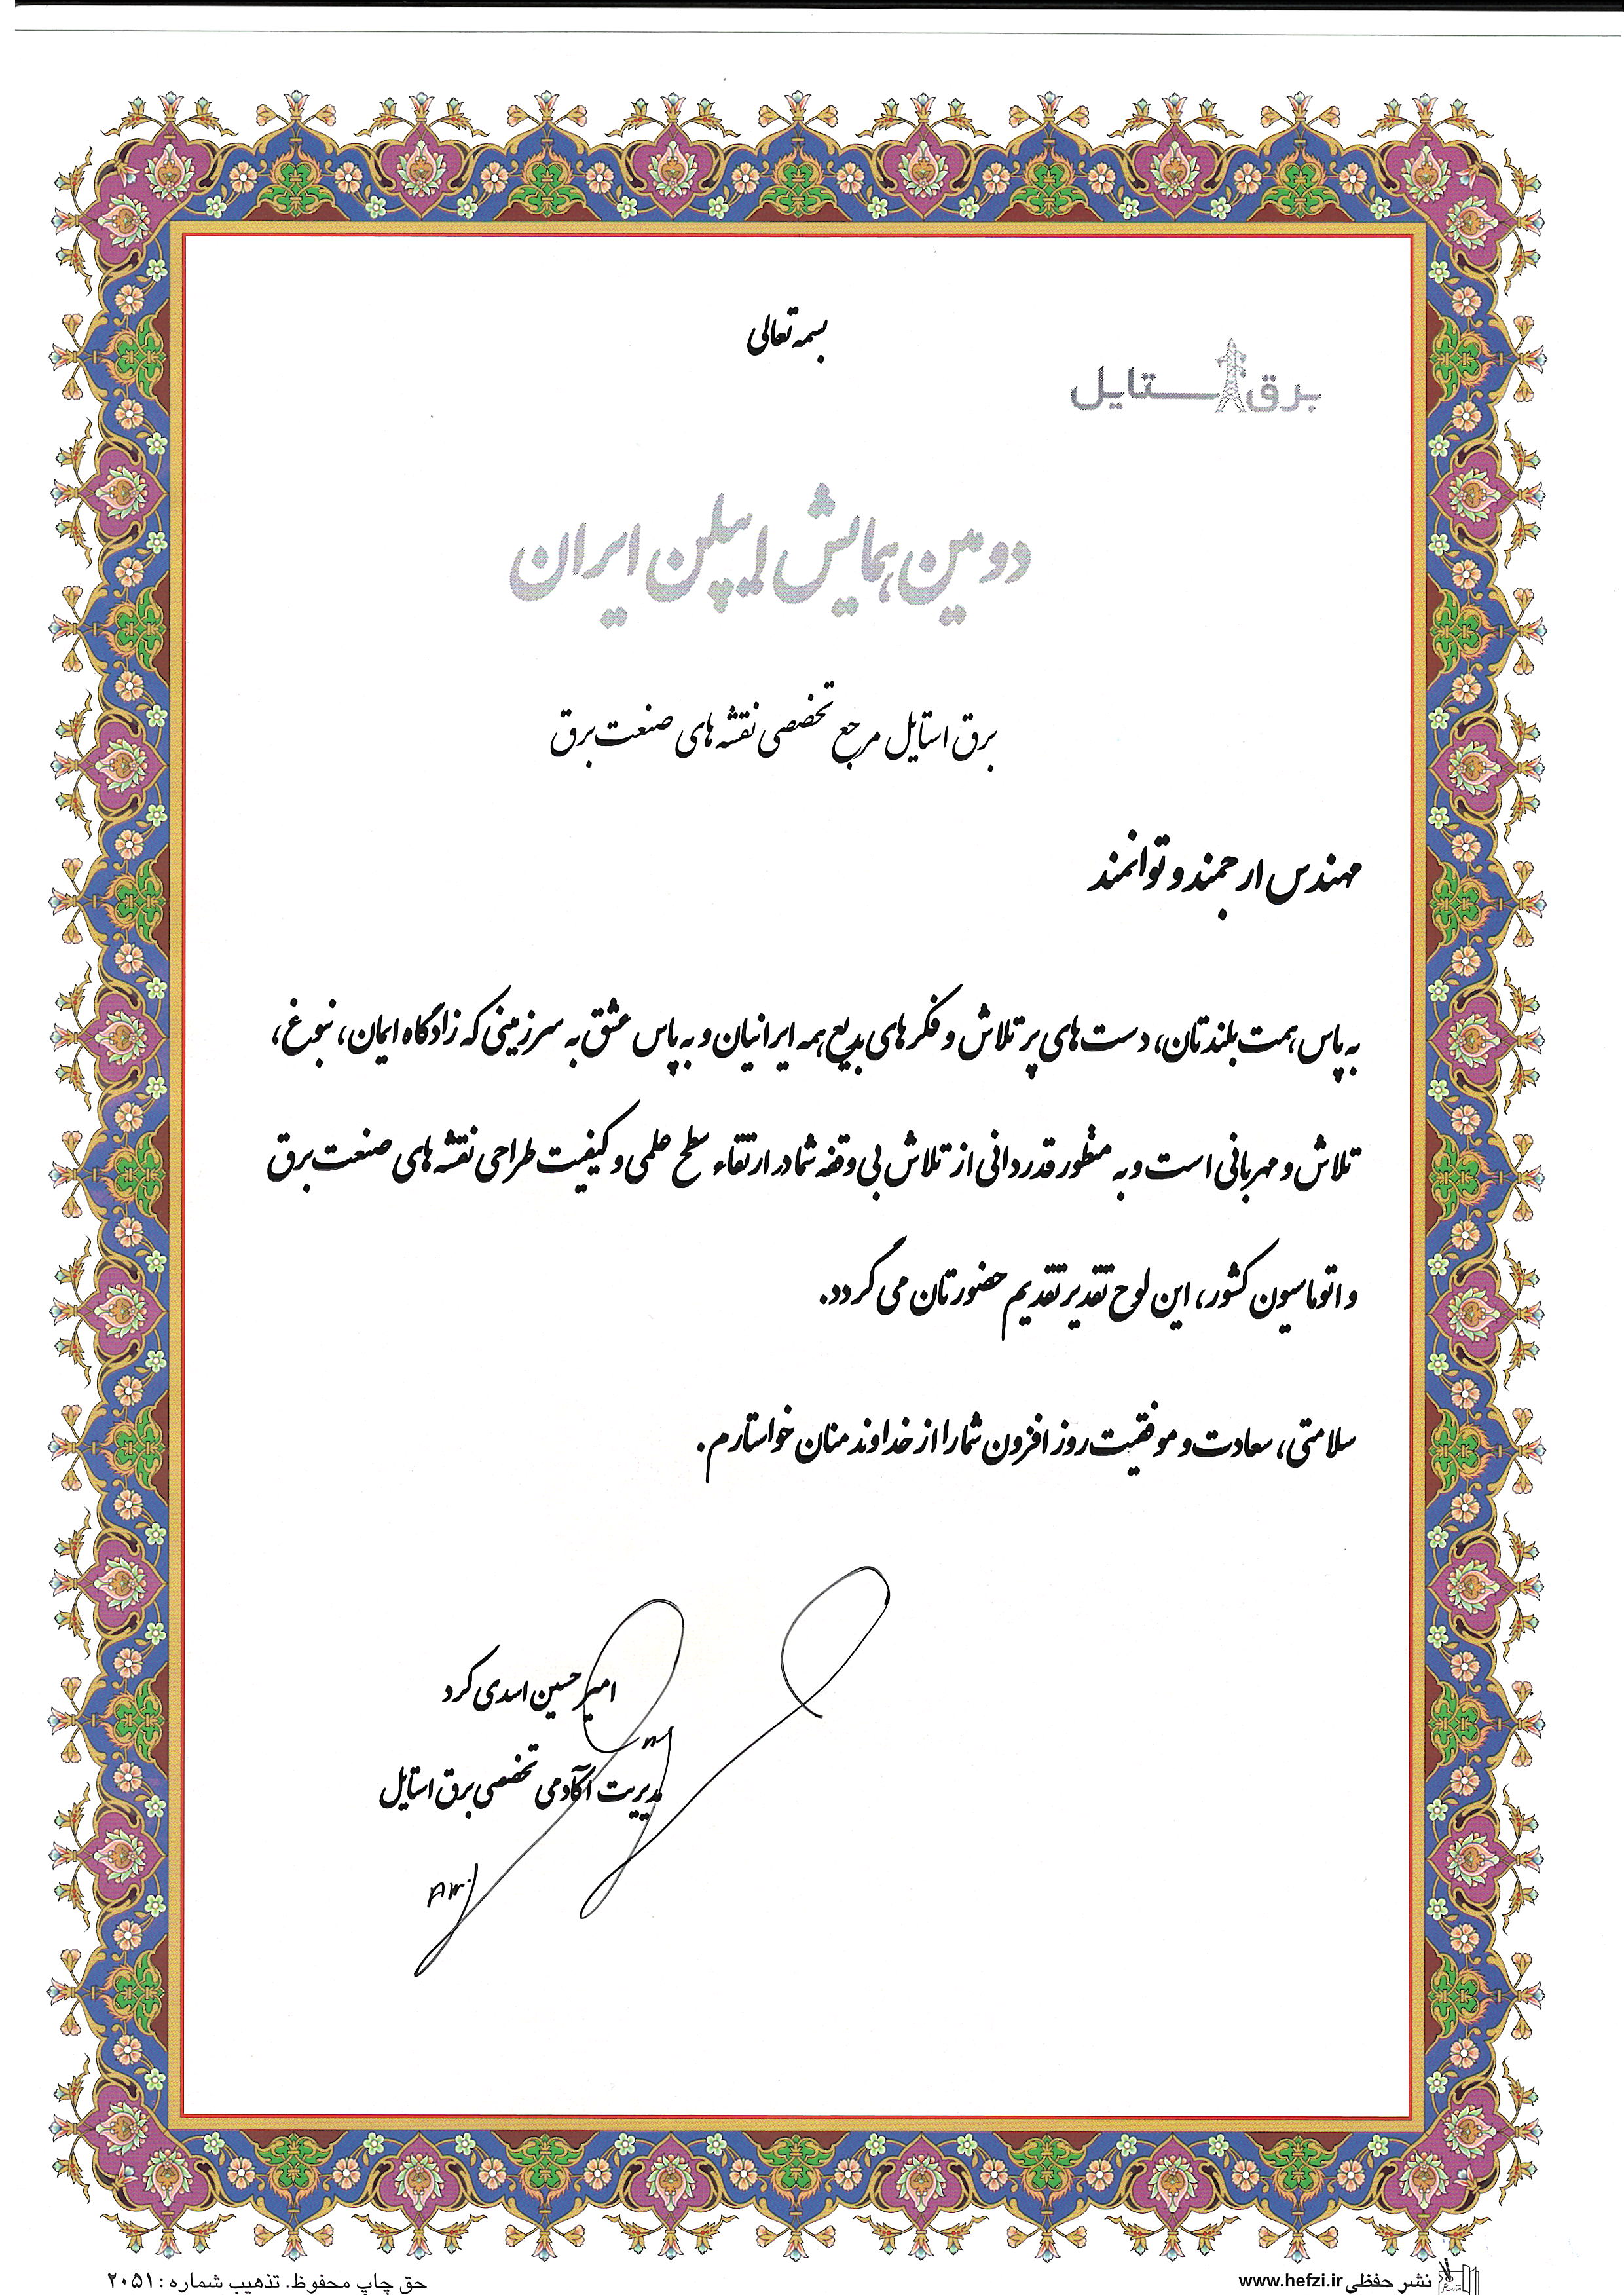 بسمه تعالی
برق استایل
دومین همایش ایپلن ایران
برق استایل مرجع تخصصی نقشه های صنعت برق
مهندس ارجمند و توانمند
به پاس همت بلندتان، دست های پر تلاش و فکرهای بدیع همه ایرانیان و به پاس عشق به سرزمینی که زادگاه ایمان، نبوغ،
تلاش و مهربانی است و به منظور قدردانی از تلاش بی وقفه شما در ارتقاء سطح علمی و کیفیت طراحی نقشه های صنعت برق
و اتوماسیون کشور، این لوح تقدیر تقدیم حضورتان می گردد.
سلامتی، سعادت و موفقیت روز افزون شما را از خداوند منان خواستارم.
امیر حسین اسدی کرد
مدیریت آکادمی تخصصی برق استایل
نشر حفظی www.hefzi.ir
حق چاپ محفوظ. تذهیب شماره : ۲۰۵۱